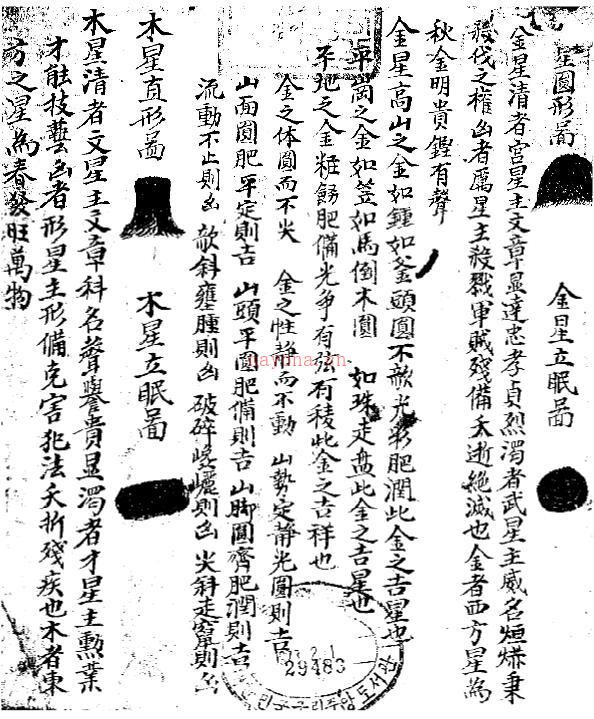 星圓形啚 金星立眠啚
金星清者官星主文章显達忠孝貞烈濁者武星主威名烜爀秉
殺伐之權凶者厲星主殺戮軍賊殘備夭逝絶滅也金者西方星為
秋金明貴鏗有聲
金星高山之金如鍾如釜頭圓不欹光彩肥潤此金之吉星也
平崗之金如笠如馬倒木圓 如珠走盘此金之吉星也
平地之金粧餳肥備光争有弦有稜此金之吉祥也
金之体圓而不尖 金之性静而不動 山勢定静光圓則吉
山面圓肥平定則吉 山頭平圓肥備則吉 山脚圓齊肥潤則吉
流動不止則凶 欹斜壅腫則凶 破碎巉巗則凶 尖斜走竄則凶
木星直形啚 木星立眠啚
木星清者文星主文章科名聲譽貴显濁者才星主勳業
才能技藝凶者形星主形備克害犯法夭折殘疾也木者東
方之星為春發旺萬物
nayona.cn
2.1
29483